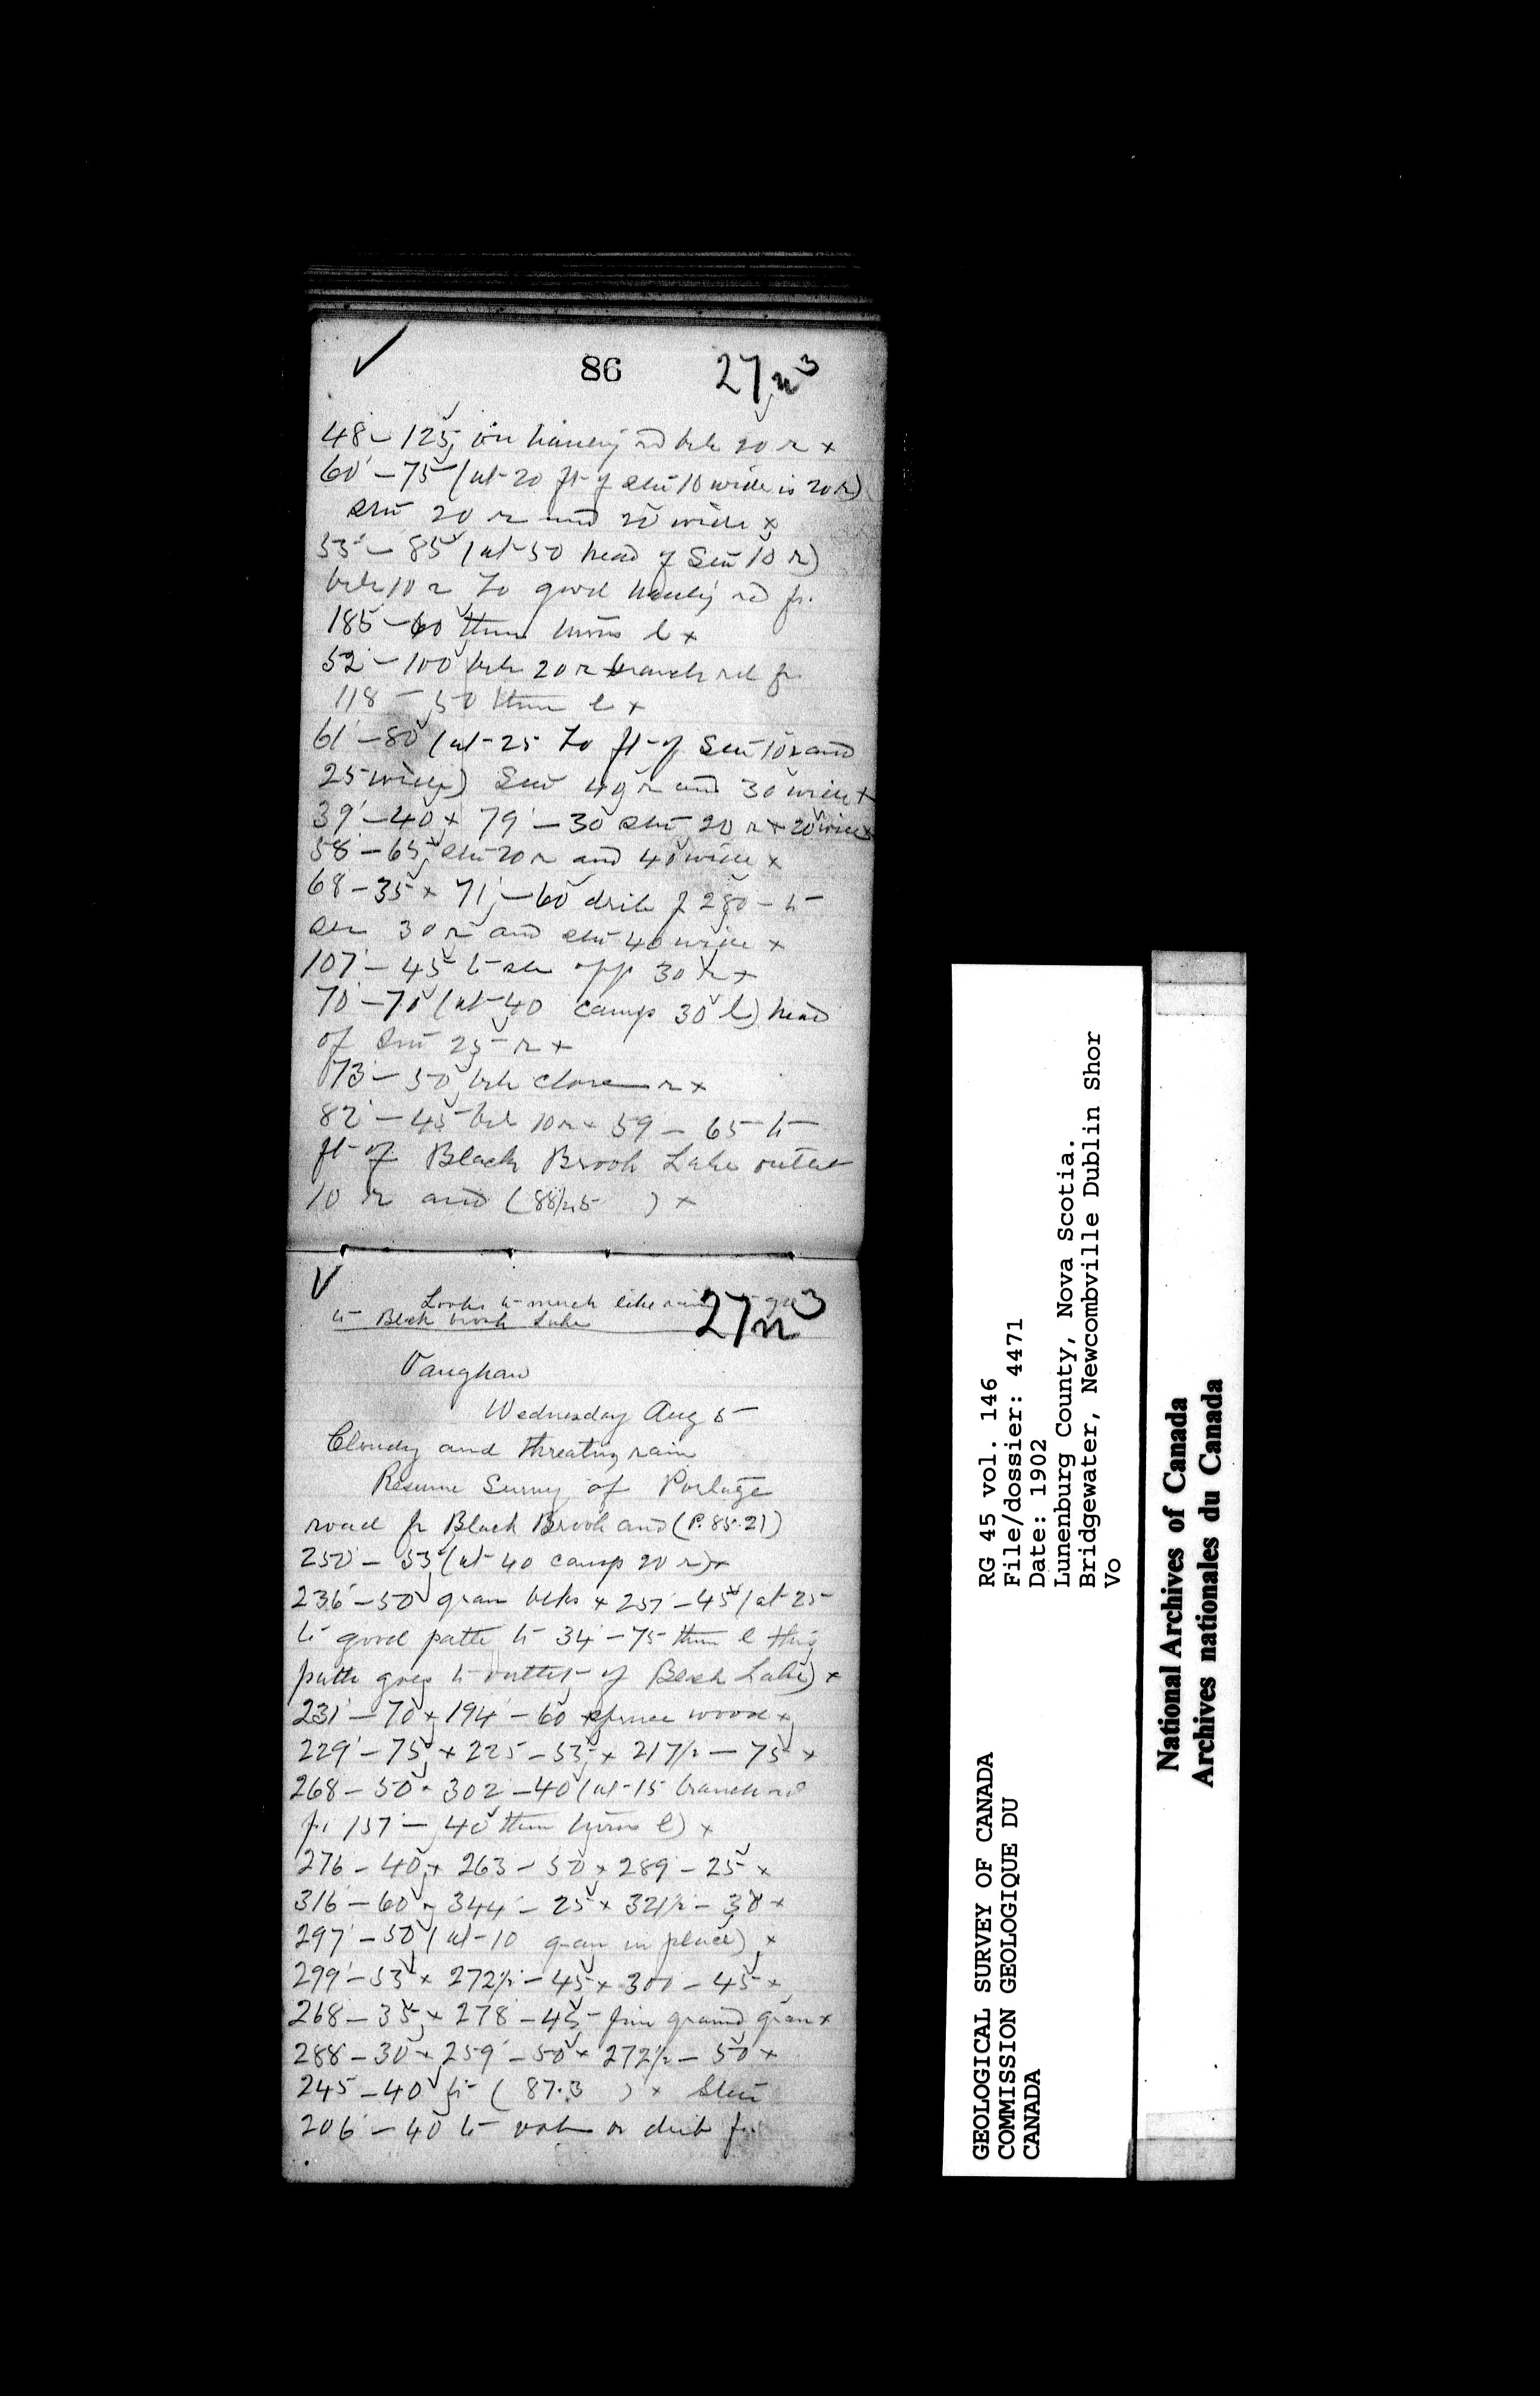 86 27n3
48 - 125 on hauling rd 20 r x
60 - 75 (at 20 ft of 10 wide is 20 r)
20 r and 20 wide x
53 - 85 (at 50 head of 10 r)
10 r to good hauling rd fr
185 - 60 then turns l x
52 - 100 20 r branch rd fr
118 - 50 then l x
61 - 80 (at 25 to ft of 10 r and
25 wide) 40 r and 30 wide x
39 - 40 x 79 - 30 20 r x 20 wide x
58 - 65 20 r and 40 wide x
68 - 35 x 71 - 60 280 - to
30 r and 40 wide x
107 - 45 to opp 30 r x
70 - 70 (at 40 camp 30 l) head
of 25 r x
73 - 50 close r x
82 - 45 10 r x 59 - 65 to
ft of Black Brook Lake outlet
10 r and (88/25 ) x
Looks to much like rain to go
to Black brook Lake
27n3
Vaughan
Wednesday Aug 5
Cloudy and threatng rain
Resume Survey of Portage
road fr Black Brook and (P. 85.21)
250 - 55 (at 40 camp 20 r) x
236 - 50 gran blks x 257 - 45 (at 25
to good path to 34 - 75 then l this
path goes to outlet of Black Lake) x
231 - 70 x 194 - 60 spruce wood x
229 - 75 x 225 - 55 x 217½ - 75 x
268 - 50 x 302 - 40 (at 15 branch rd
fr 157 - 40 then turns l) x
276 - 40 x 263 - 50 x 289 - 25 x
316 - 60 x 344 - 25 x 321½ - 30 x
297 - 50 (at 10 gran in place) x
299 - 55 x 272½ - 45 x 300 - 45 x
268 - 35 x 278 - 45 fine graind gran x
288 - 30 x 259 - 50 x 272½ - 50 x
245 - 40 to (87.3 ) x
206 - 40 to or fr
GEOLOGICAL SURVEY OF CANADA
COMMISSION GEOLOGIQUE DU
CANADA
RG 45 vol. 146
File/dossier: 4471
Date: 1902
Lunenburg County, Nova Scotia.
Bridgewater, Newcombville Dublin Shor
Vo
National Archives of Canada
Archives nationales du Canada